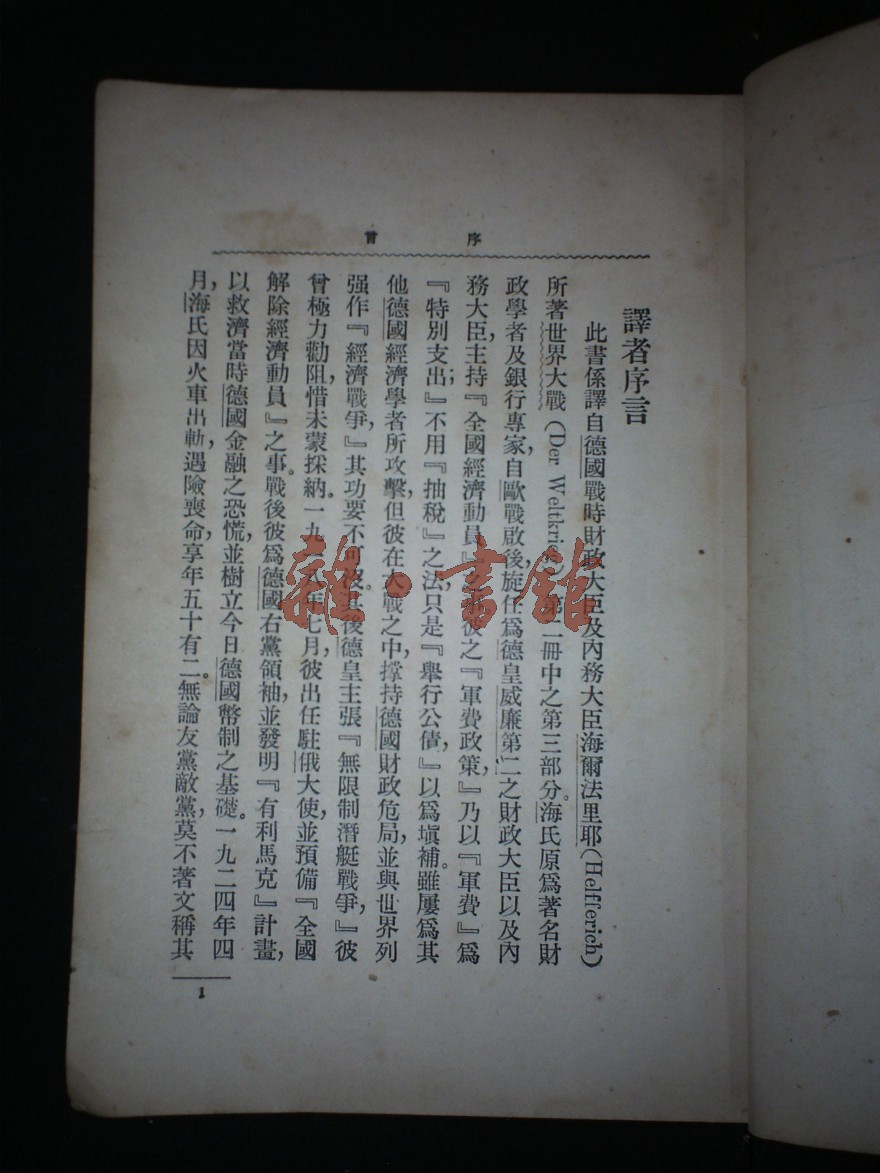 序言
譯者序言
此書係譯自德國戰時財政大臣及內務大臣海爾法里耶(Helfferich)
所著世界大戰(Der Weltkrieg)第二冊中之第三部分。海氏原爲著名財
政學者及銀行專家,自歐戰啟後,旋任爲德皇威廉第二之財政大臣以及內
務大臣,主持『全國經濟動員』彼之『軍費政策,』乃以『軍費』爲
『特別支出;』不用『抽稅』之法,只是『舉行公債,』以爲塡補。雖屢爲其
他德國經濟學者所攻擊,但彼在大戰之中,撐持德國財政危局,並與世界列
强作『經濟戰爭,』其功要不可沒。其後德皇主張『無限制潛艇戰爭,』彼
曾極力勸阻,惜未蒙採納。一九一八年七月,彼出任駐俄大使,並預備『全國
解除經濟動員』之事。戰後彼爲德國右黨領袖,並發明『有利馬克』計畫,
以救濟當時德國金融之恐慌,並樹立今日德國幣制之基礎。一九二四年四
月,海氏因火車出軌,遇險喪命,享年五十有二。無論友黨敵黨,莫不著文稱其
1
雜·書館